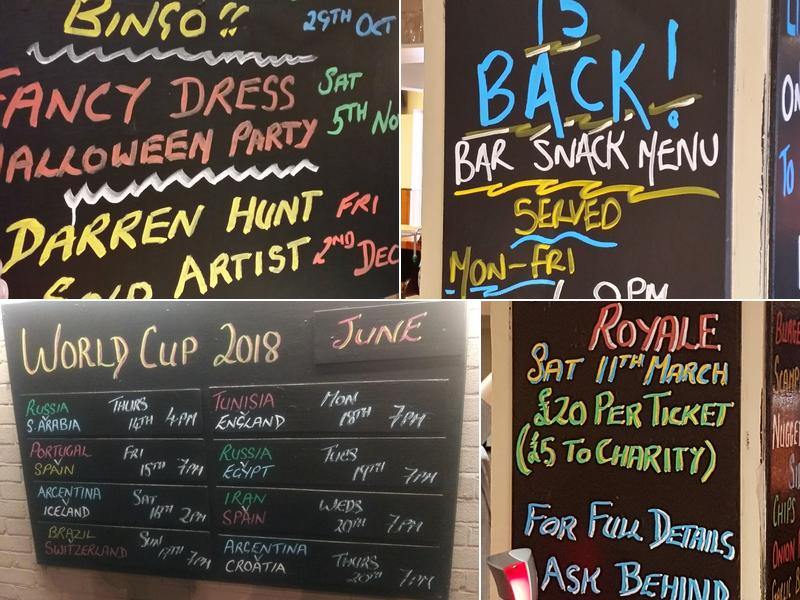 BINGO!!
29TH OCT
FANCY DRESS
HALLOWEEN PARTY
SAT
5TH NO
DARREN HUNT
SOLO ARTIST
FRI
2ND DEC
IS
BACK!
BAR SNACK MENU
SERVED
MON-FRI
PM
ON
TO
WORLD CUP 2018
JUNE
RUSSIA V S.ARABIA THURS 14TH 4PM
PORTUGAL V SPAIN FRI 15TH 7PM
ARGENTINA V ICELAND SAT 16TH 2PM
BRAZIL V SWITZERLAND SUN 17TH 7PM
TUNISIA V ENGLAND MON 18TH 7PM
RUSSIA V EGYPT TUES 19TH 7PM
IRAN V SPAIN WEDS 20TH 7PM
ARGENTINA V CROATIA THURS 20TH 7PM
ROYALE
SAT 11TH MARCH
£20 PER TICKET
(£5 TO CHARITY)
FOR FULL DETAILS
ASK BEHIND
BURGE
SCAMP
NUGGE
CHIPS
ONION